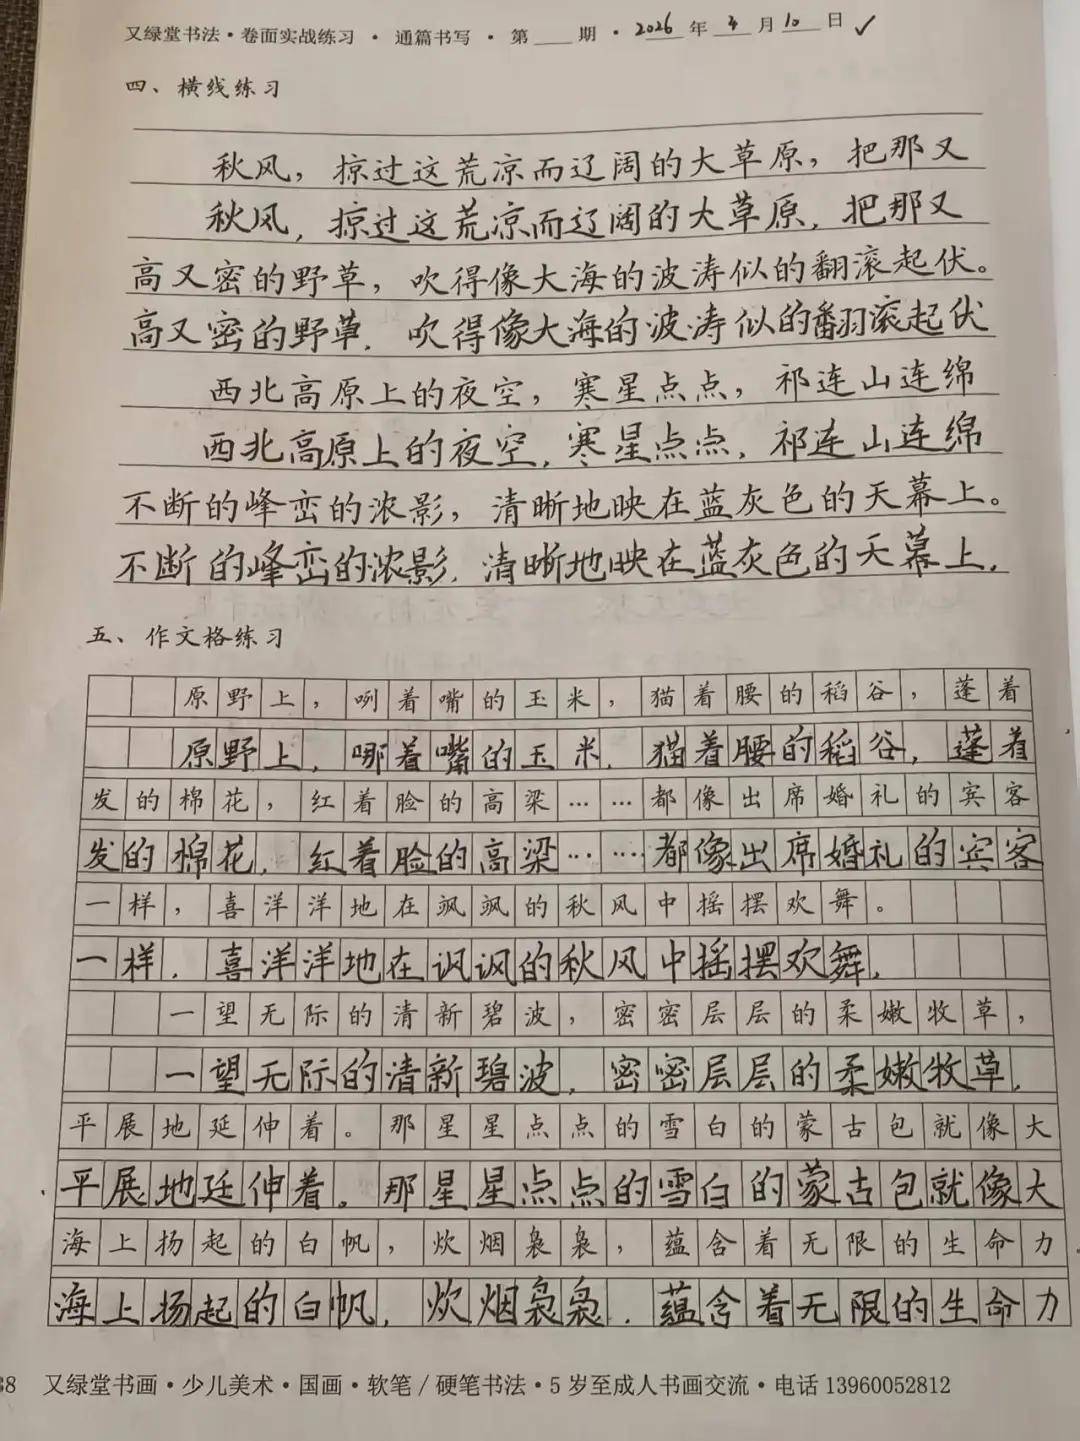 又绿堂书法·卷面实战练习 · 通篇书写 · 第 期 · 2026 年 4 月 10 日 ✓
四、横线练习
秋风，掠过这荒凉而辽阔的大草原，把那又
秋风,掠过这荒凉而辽阔的大草原,把那又
高又密的野草，吹得像大海的波涛似的翻滚起伏。
高又密的野草.吹得像大海的波涛似的翻滚起伏
西北高原上的夜空，寒星点点，祁连山连绵
西北高原上的夜空,寒星点点,祁连山连绵
不断的峰峦的浓影，清晰地映在蓝灰色的天幕上。
不断的峰峦的浓影.清晰地映在蓝灰色的天幕上.
五、作文格练习
原野上，咧着嘴的玉米，猫着腰的稻谷，蓬着
原野上,哪着嘴的玉米.猫着腰的稻谷,蓬着
发的棉花，红着脸的高粱……都像出席婚礼的宾客
发的棉花,红着脸的高梁……都像出席婚礼的宾客
一样，喜洋洋地在飒飒的秋风中摇摆欢舞。
一样.喜洋洋地在讽讽的秋风中摇摆欢舞.
一望无际的清新碧波，密密层层的柔嫩牧草，
一望无际的清新碧波,密密层层的柔嫩牧草,
平展地延伸着。那星星点点的雪白的蒙古包就像大
平展地延伸着。那星星点点的雪白的蒙古包就像大
海上扬起的白帆，炊烟袅袅，蕴含着无限的生命力
海上扬起的白帆,炊烟袅袅.蕴含着无限的生命力
38 又绿堂书画·少儿美术·国画·软笔/硬笔书法·5岁至成人书画交流·电话13960052812